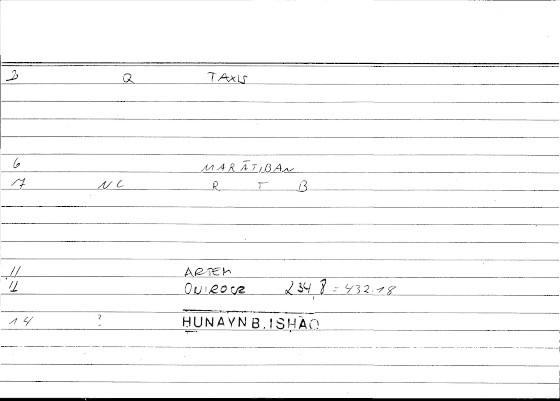 3 Q TAXIS
6 MARĀTIBAN
17 NC R T B
11 ARTEM
11 ONIROCR 234,8 = 432.18
14 ? HUNAYN B. ISHĀQ